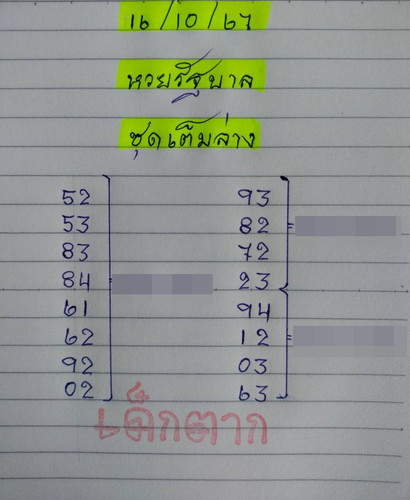 16/10/67
หวยรัฐบาล
ชุดเต็มล่าง
52 93
53 82 =
83 72
84 23
61 94
62 12 =
92 03
02 63
เด็กตาก